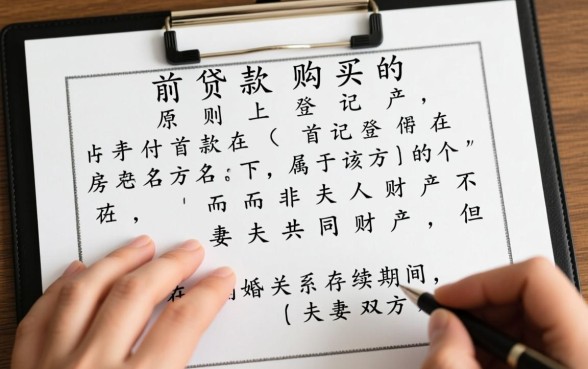 前贷款购买的
原则上登记产，
付首款在（首记登得在
房名方名。下，属于该方）的个”
在，而而非夫人财产不
妻夫共同财产，但
在婚关系存续期间，
（夫妻双方